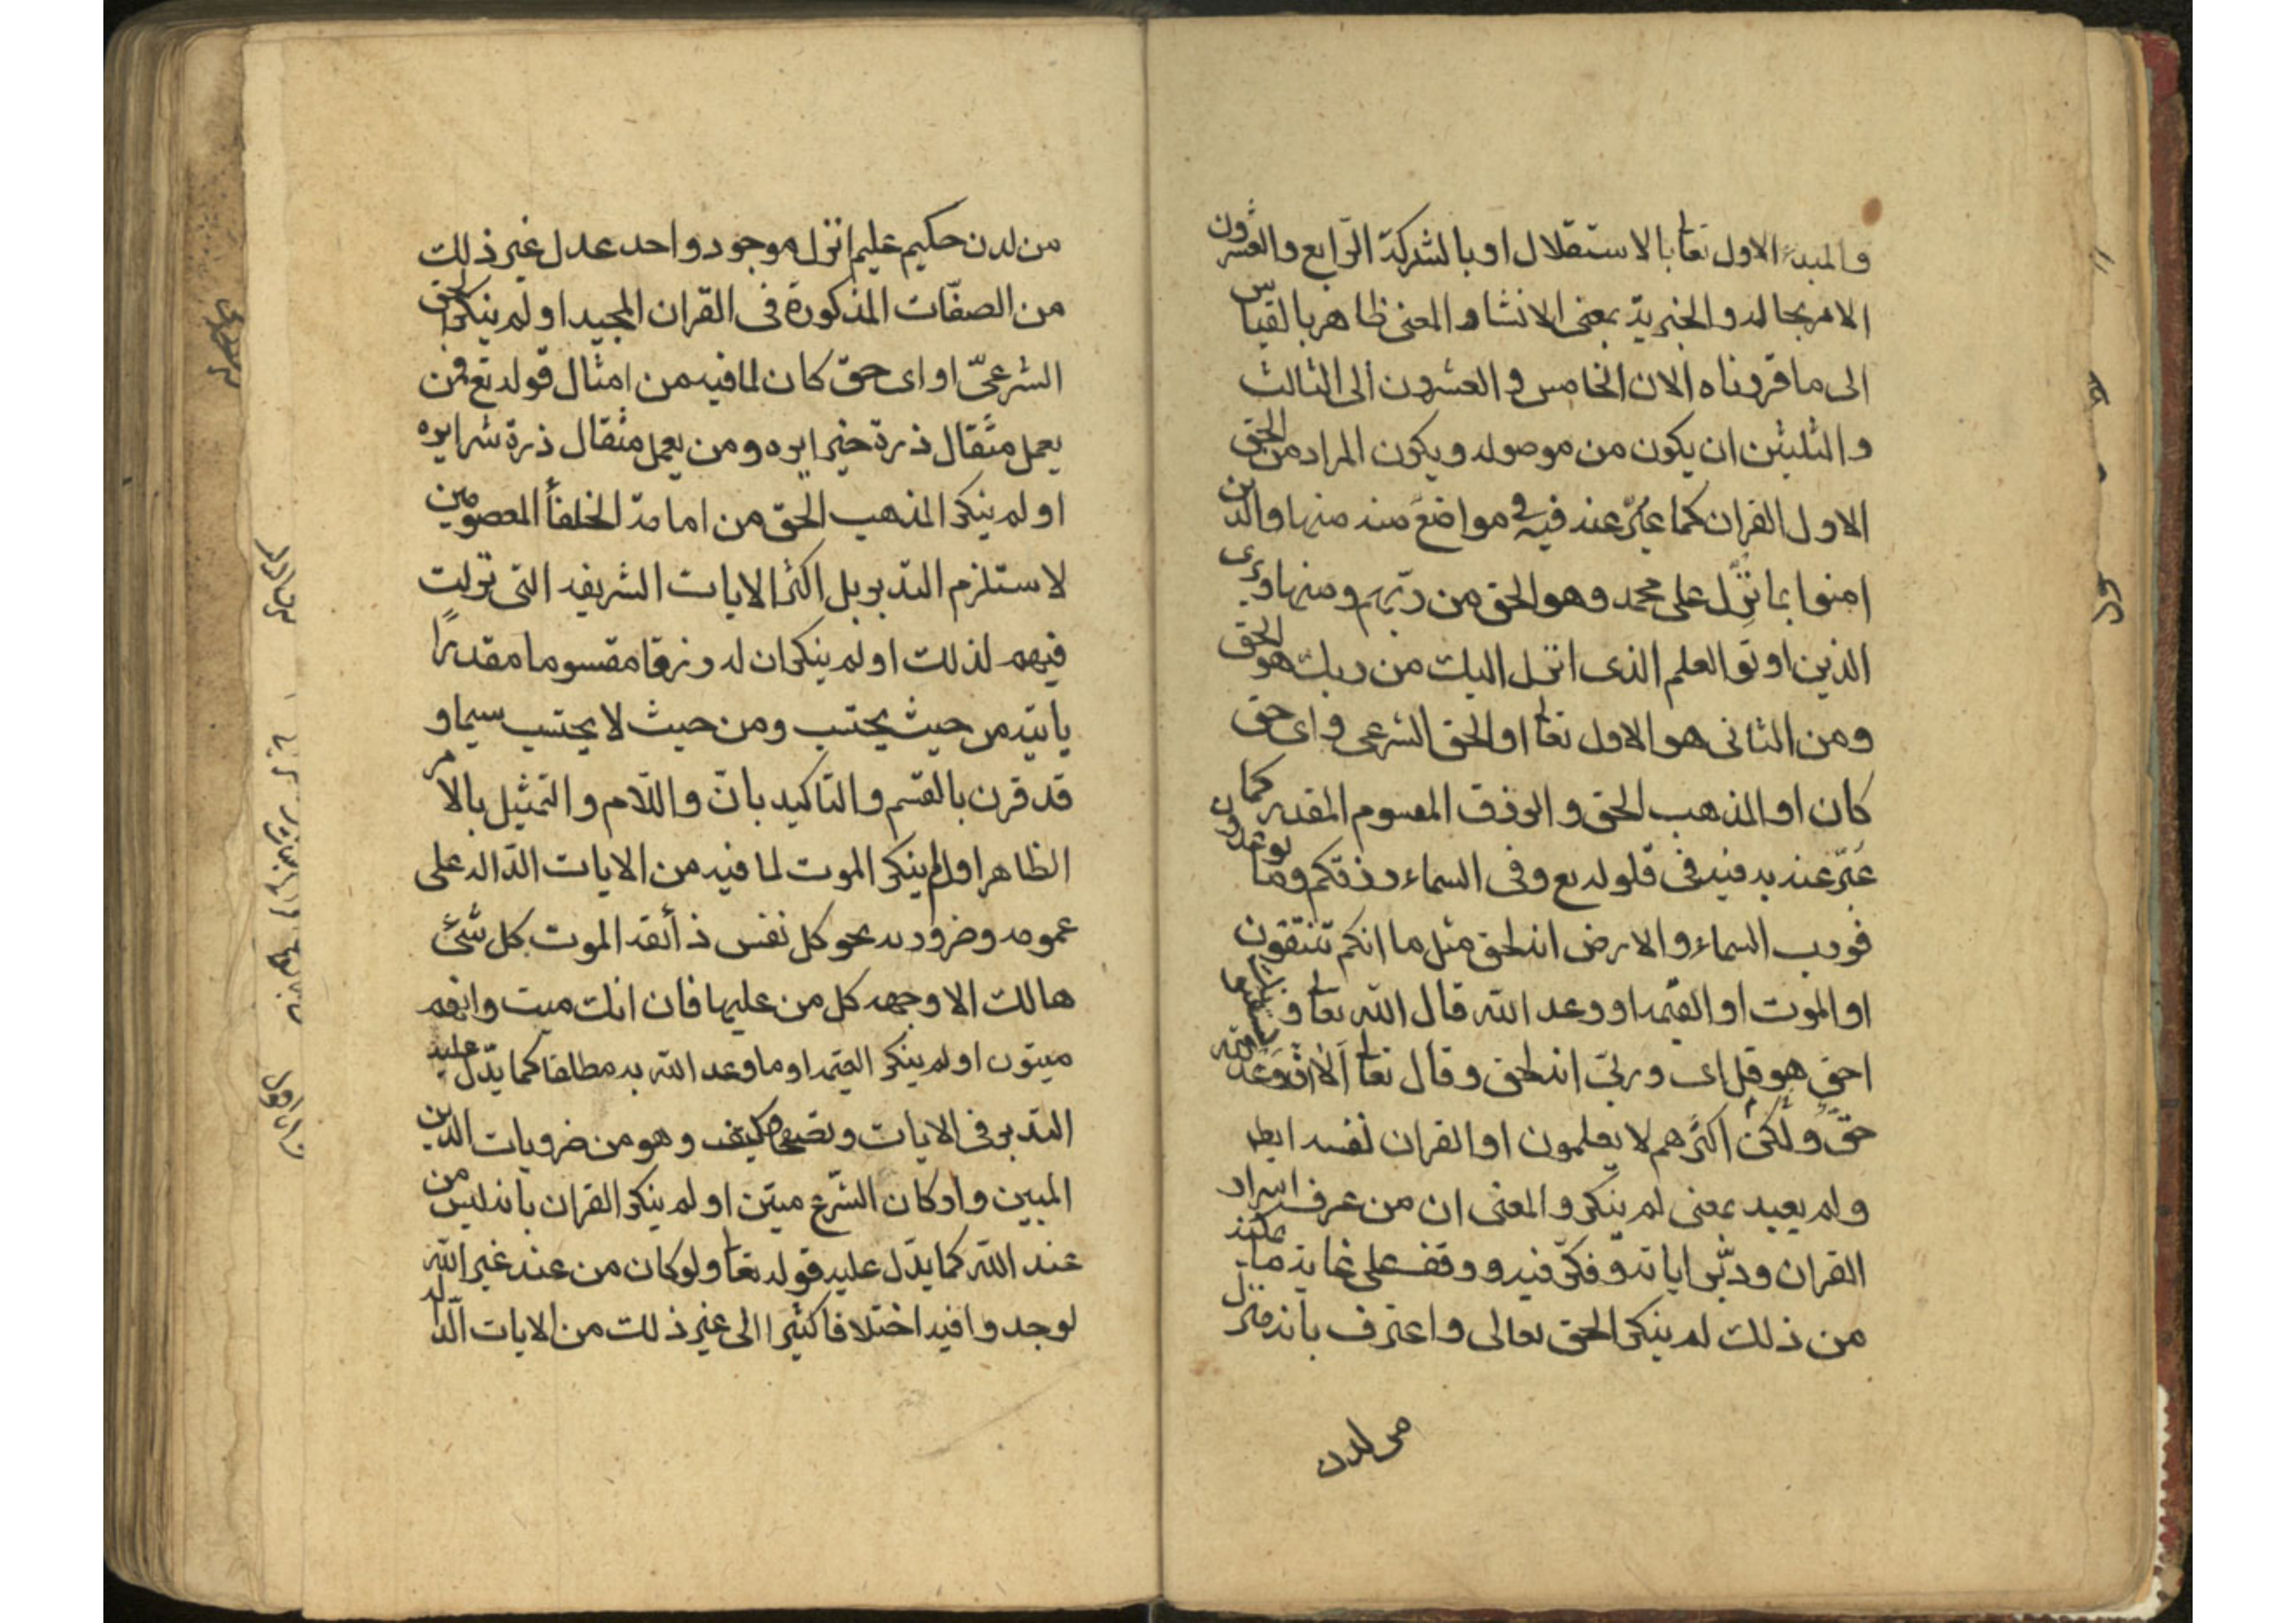 والمبدء الاول تعا بالاستقلال او بالشركة الرابع والعشرون
الامر بحاله والخبرية بمعنى الانشا والمعنى ظاهر بالقياس
الى ما قررناه الان الخامس والعشرون الى الثالث
والثلثين ان يكون من موصوله ويكون المراد من الحق
الاول القران كما عبّر عنه فيه في مواضع منه منها والذين
امنوا بما نزّل على محمد وهو الحق من ربهم ومنها ويرى
الذين اوتو العلم الذى انزل اليك من ربك هو الحق
ومن الثانى هو الاول تعا او الحق الشرعى و اى حق
كان او المذهب الحق و الرزق المقسوم المقدر كما
عبّر عنه به فيه فى قلوله تع وفى السماء رزقكم وما توعدون
فورب السماء والارض انه لحق مثل ما انكم تنتقون
او الموت او القيمه او وعد الله قال الله تعا و يستنبؤنك
احق هو قل اى و ربىّ انه لحق وقال تعا الا ان وعد الله
حقّ ولكن اكثرهم لا يعلمون او القران نفسه ايضا
ولم يعبد بمعنى لم ينكر والمعنى ان من عرف اسرار
القران ودبّر اياته وفكّر فيه و وقف على غاية ما يمكنه
من ذلك لم ينكر الحق تعالى واعترف بانه منزل
من لدن
من لدن حكيم عليم انزله موجود واحد عدل غير ذلك
من الصفّات المذكورة فى القران المجيد او لم ينكر الحق
الشرعىّ او اى حق كان لما فيه من امثال قوله تع فمن
يعمل مثقال ذرة خيرا يره ومن يعمل مثقال ذرة شرا يره
او لم ينكر المذهب الحق من امامة الخلفأ المعصومين
لاستلزم التدبر بل اكثر الايات الشريفه التى نزلت
فيهم لذلك او لم ينكر ان له رزقا مقسوما مقدرًا
ياتيه من حيث يحتسب ومن حيث لا يحتسب سيما و
قد قرن بالقسم والتاكيد بانّ واللام والتمثيل بالامر
الظاهر او لم ينكر الموت لما فيه من الايات الدّاله على
عمومه وضروريه نحو كل نفس ذائقه الموت كل شىء
هالك الا وجهه كل من عليها فان انك ميت وانهم
ميتون او لم ينكر القيمه او ما وعد الله به مطلقا كما يدّل عليه
التدبر فى الايات و كيف وهو من ضروريات الدين
المبين واركان الشرع متين او لم ينكر القران بانه ليس من
عند الله كما يدّل عليه قوله تعا ولو كان من عند غير الله
لوجدوا فيه اختلافا كثيرا الى غير ذلك من الايات الدّاله